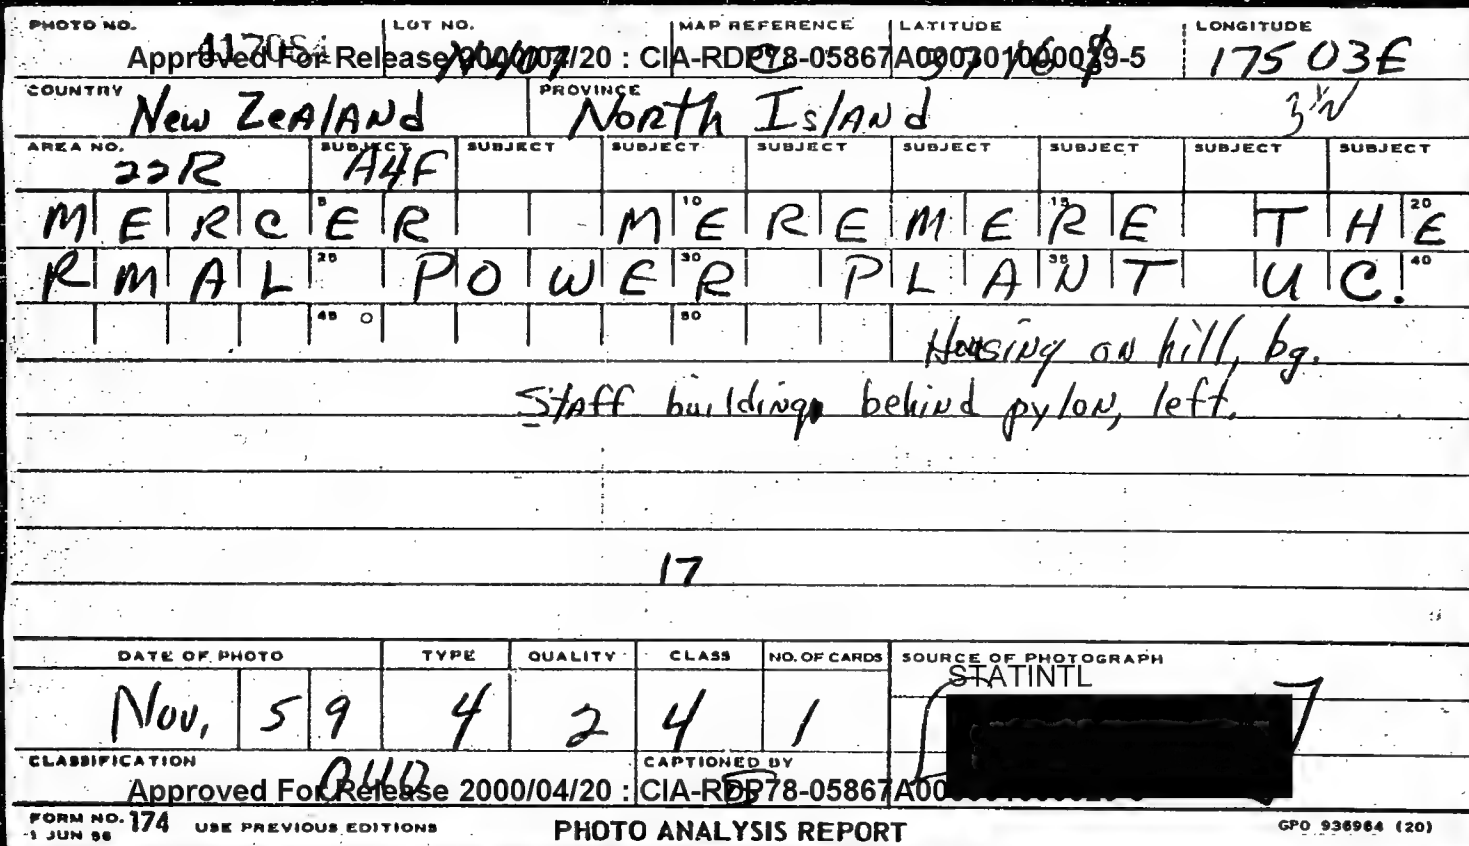 PHOTO NO. LOT NO. MAP REFERENCE LATITUDE LONGITUDE
Approved For Release 2000/04/20 : CIA-RDP78-05867A000301000029-5 175 03E
COUNTRY New ZeAlANd PROVINCE NoRth IslANd
AREA NO. 22R SUBJECT A4F SUBJECT SUBJECT SUBJECT SUBJECT SUBJECT SUBJECT SUBJECT
MERCER 5 MEREMERE 10 15 THE 20
RMAL 25 POWER 30 PLANT 35 UC. 40
45 50
Housing on hill, bg.
Staff building behind pylon, left.
17
DATE OF PHOTO TYPE QUALITY CLASS NO. OF CARDS SOURCE OF PHOTOGRAPH
STATINTL
Nov, 59 4 2 4 1
CLASSIFICATION OUO CAPTIONED BY
Approved For Release 2000/04/20 : CIA-RDP78-05867A000301000029-5
FORM NO. 174 USE PREVIOUS EDITIONS PHOTO ANALYSIS REPORT GPO 936964 (20)
1 JUN 56